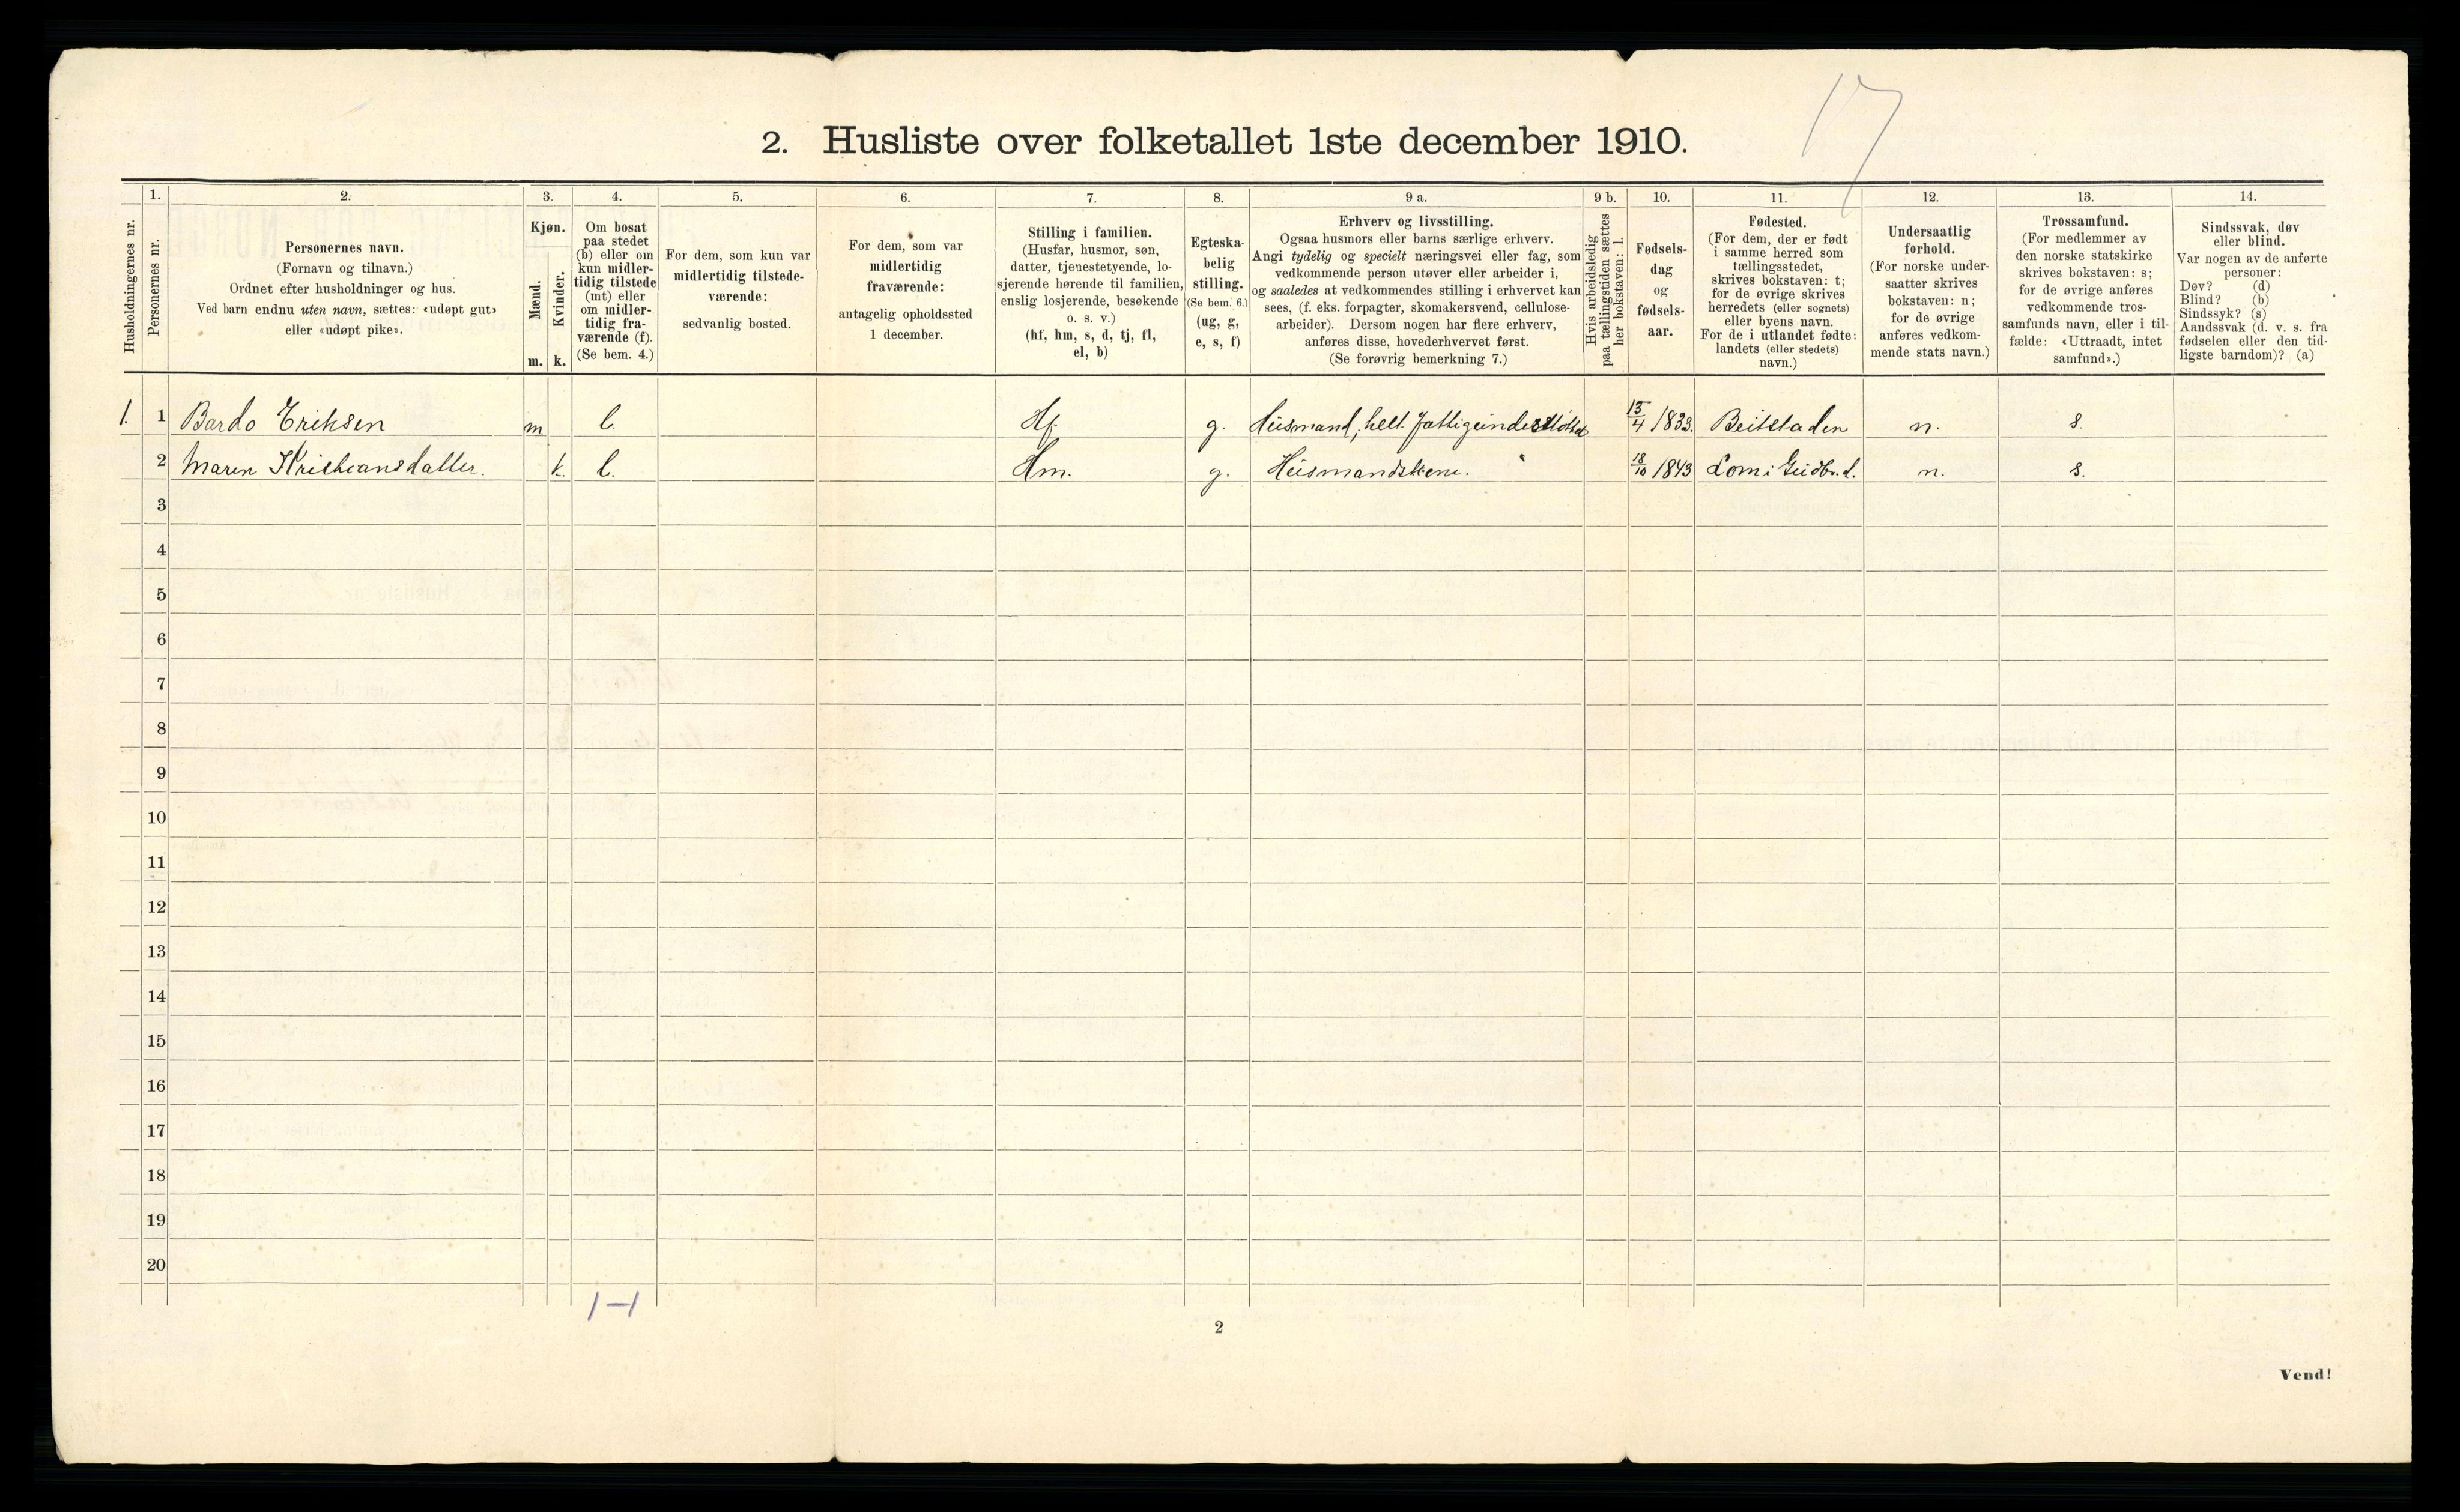 17
2. Husliste over folketallet 1ste december 1910.
Husholdningernes nr.
1.
Personernes nr.
2.
Personernes navn.
(Fornavn og tilnavn.)
Ordnet efter husholdninger og hus.
Ved barn endnu uten navn, sættes: «udøpt gut»
eller «udøpt pike».
3.
Kjøn.
Mænd.
m.
Kvinder.
k.
4.
Om bosat
paa stedet
(b) eller om
kun midler-
tidig tilstede
(mt) eller
om midler-
tidig fra-
værende (f).
(Se bem. 4.)
5.
For dem, som kun var
midlertidig tilstede-
værende:
sedvanlig bosted.
6.
For dem, som var
midlertidig
fraværende:
antagelig opholdssted
1 december.
7.
Stilling i familien.
(Husfar, husmor, søn,
datter, tjenestetyende, lo-
sjerende hørende til familien,
enslig losjerende, besøkende
o. s. v.)
(hf, hm, s, d, tj, fl,
el, b)
8.
Egteska-
belig
stilling.
(Se bem. 6.)
(ug, g,
e, s, f)
9 a.
Erhverv og livsstilling.
Ogsaa husmors eller barns særlige erhverv.
Angi tydelig og specielt næringsvei eller fag, som
vedkommende person utøver eller arbeider i,
og saaledes at vedkommendes stilling i erhvervet kan
sees, (f. eks. forpagter, skomakersvend, cellulose-
arbeider). Dersom nogen har flere erhverv,
anføres disse, hovederhvervet først.
(Se forøvrig bemerkning 7.)
9 b.
Hvis arbeidsledig
paa tællingstiden sættes
her bokstaven: l.
10.
Fødsels-
dag
og
fødsels-
aar.
11.
Fødested.
(For dem, der er født
i samme herred som
tællingsstedet,
skrives bokstaven: t;
for de øvrige skrives
herredets (eller sognets)
eller byens navn.
For de i utlandet fødte:
landets (eller stedets)
navn.)
12.
Undersaatlig
forhold.
(For norske under-
saatter skrives
bokstaven: n;
for de øvrige
anføres vedkom-
mende stats navn.)
13.
Trossamfund.
(For medlemmer av
den norske statskirke
skrives bokstaven: s;
for de øvrige anføres
vedkommende tros-
samfunds navn, eller i til-
fælde: «Uttraadt, intet
samfund».)
14.
Sindssvak, døv
eller blind.
Var nogen av de anførte
personer:
Døv? (d)
Blind? (b)
Sindssyk? (s)
Aandssvak (d. v. s. fra
fødselen eller den tid-
ligste barndom)? (a)
1. 1 Bardo Eriksen m b. Hf. g. Husmand, helt fattigunderstøttet 13/4 1833. Beitstaden n. s.
2 Maren Kristiansdatter. k. b. Hm. g. Husmandskone. " 18/10 1843 Lom i Gudbr.d. n. s.
3
4
5
6
7
8
9
10
11
12
13
14
15
16
17
18
19
20
1-1
2
Vend!